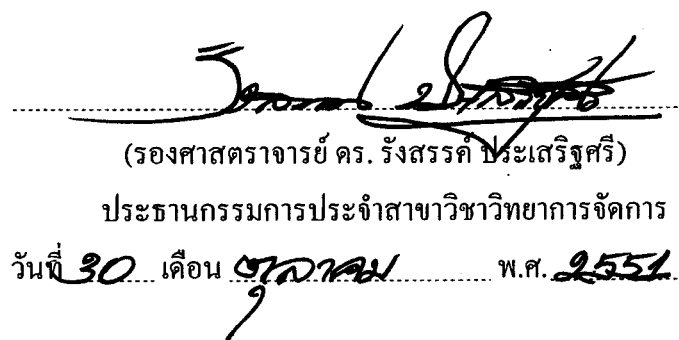 (รองศาสตราจารย์ ดร. รังสรรค์ ประเสริฐศรี)
ประธานกรรมการประจำสาขาวิชาวิทยาการจัดการ
วันที่ 30 เดือน ตุลาคม พ.ศ. 2551